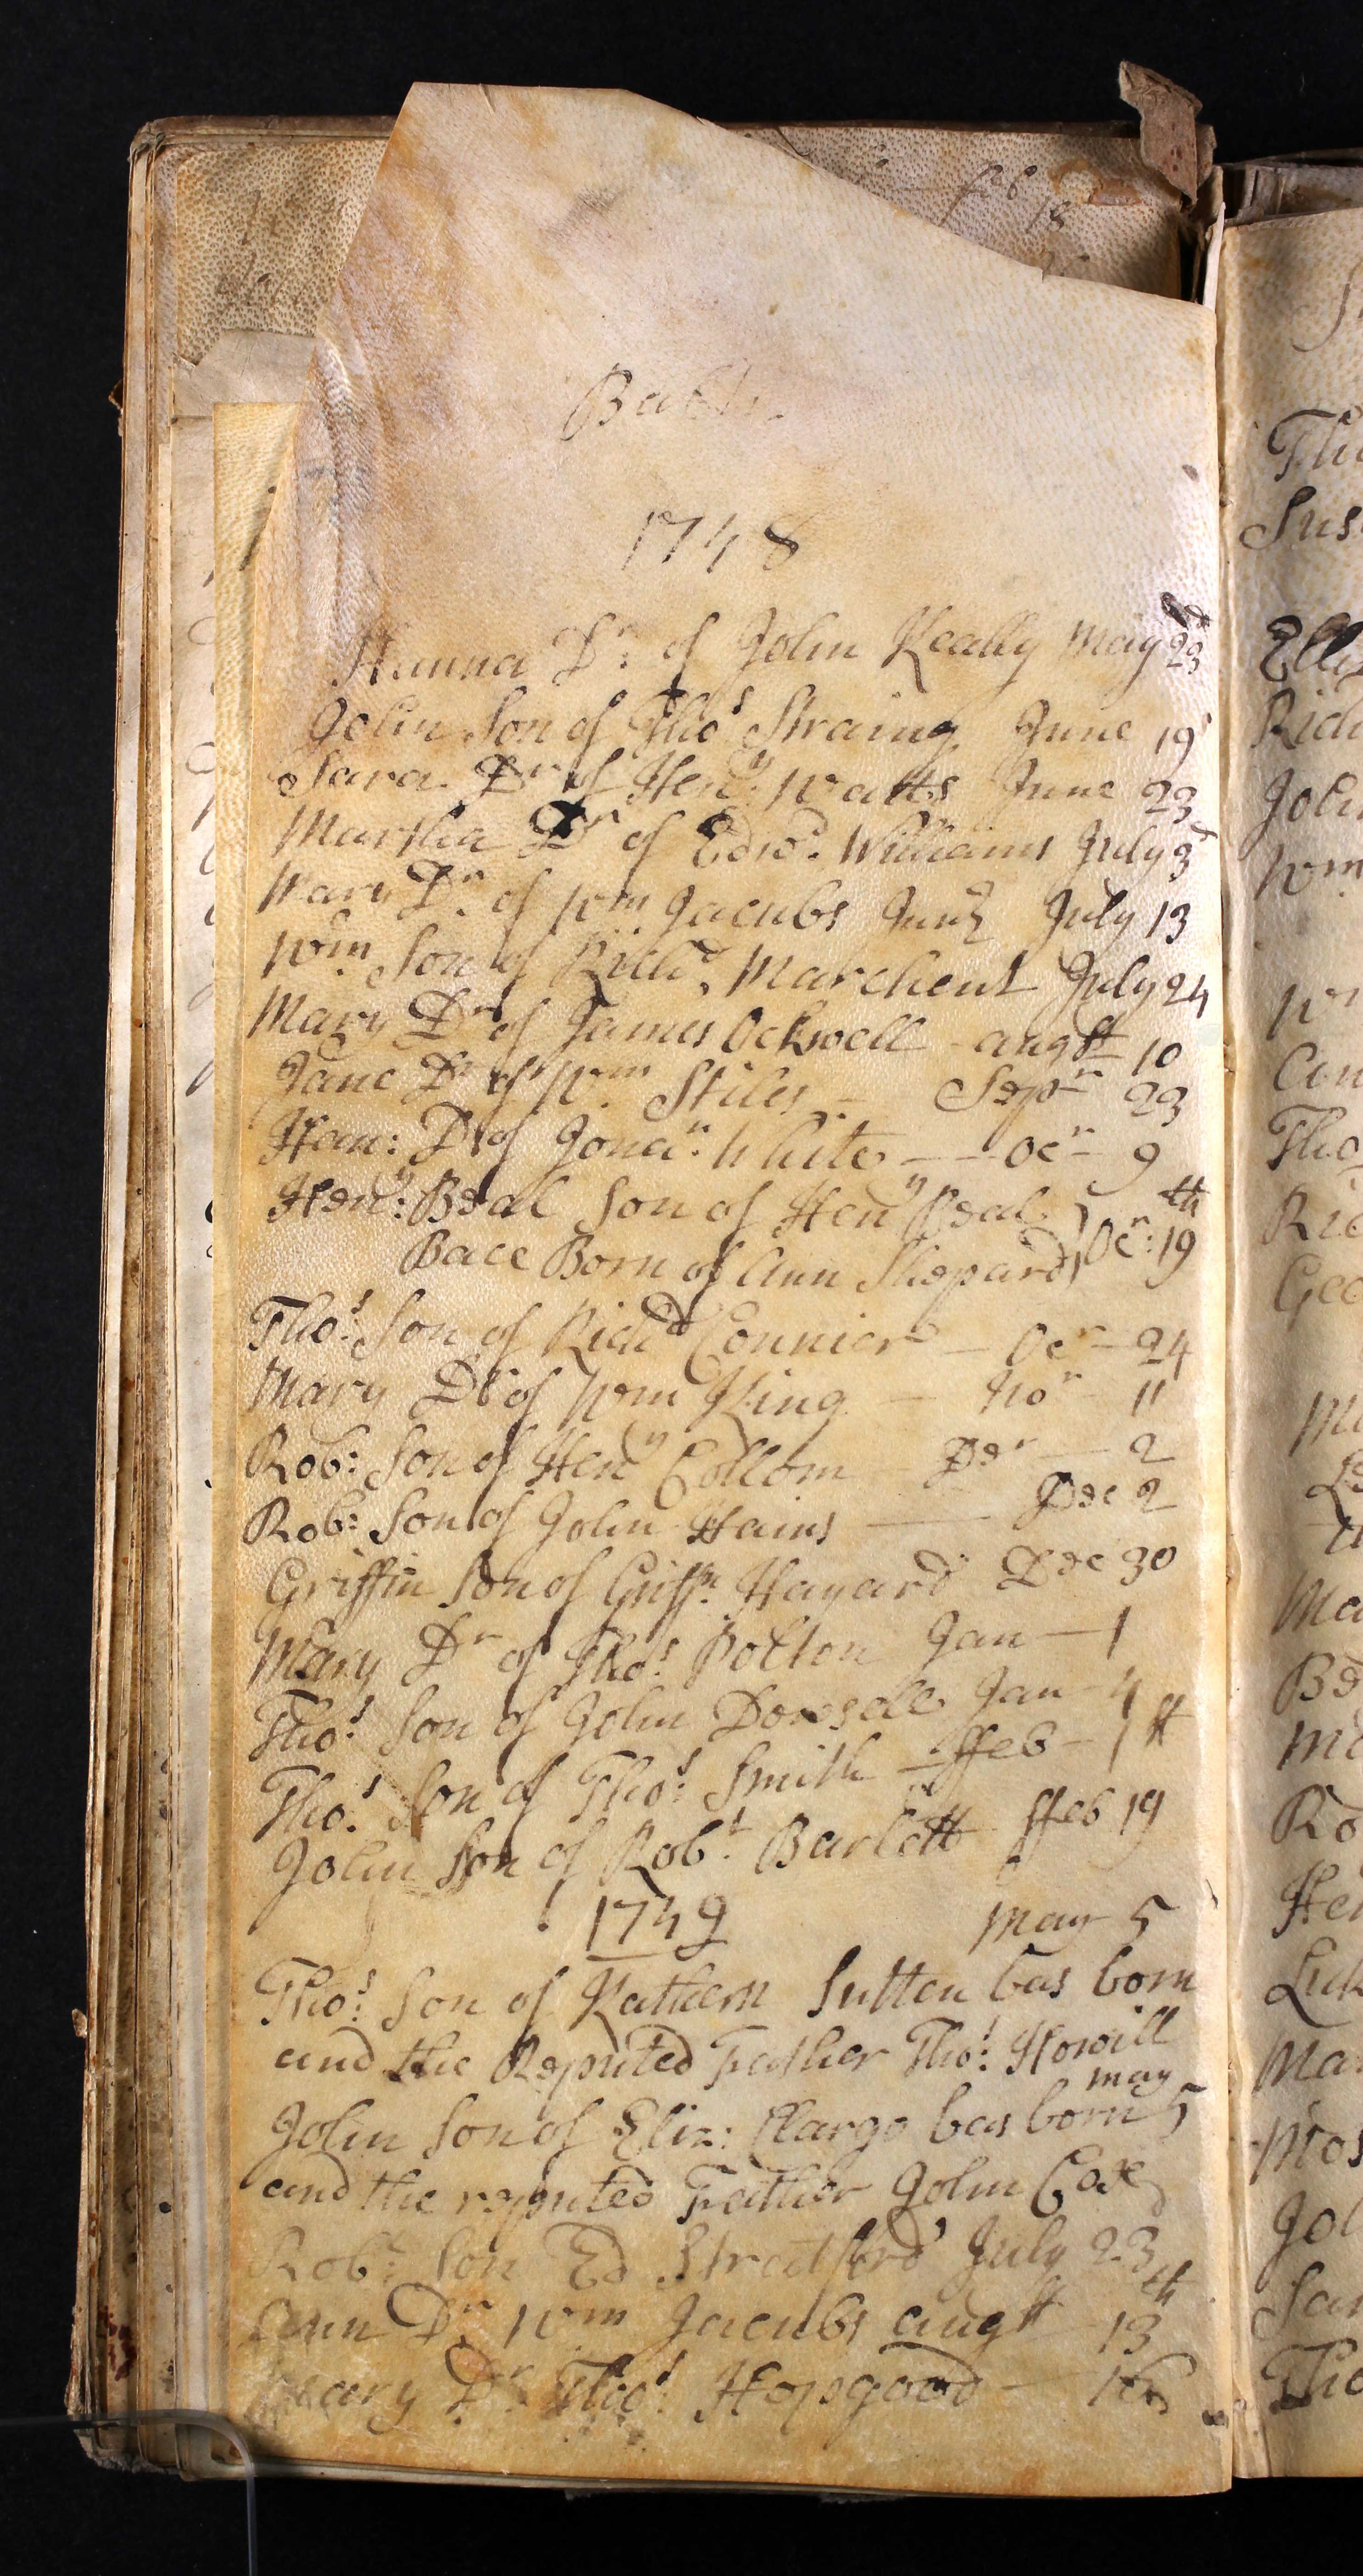 feb
18
1748
Hanna Dr. of John Keally May 23d
John Son of Thos Straing June 19
Sara Dr of Heny: Watts June 23
Martha Dr of Edwd. Williams July 3d
Mary Dr. of Wm Jacubs Junr July 13
Wm Son of Richd. Marchent July 24
Mary Dr of James Ockwell augst 10
Jane Dr of Wm. Stiles - Sepr 23
Han: Dr of Jonan: White - Ocr - 9
Heny: Beal Son of Heny Beal
Bace Born of Ann Shepard Ocr: 19th
Thos: Son of Richd Connier - Ocr - 24
Mary Dr of Wm King - Nor - 11
Rob: Son of Heny Collom Der - 2
Rob: Son of John Hains - Dec 2
Griffin Son of Griffn. Hayard Dec 30
Mary Dr of Thos: Polton Jan - 1
Thos: Son of John Dowsell Jan - 4
Thos: Son of Thos: Smith - ffeb - 1st
John Son of Robt. Barlett ffeb 19
1749 May 5
Thos: Son of Kathern Sutten bas born
and the Reputed Father Thos: Howill
may
John Son of Eliz: Clargo bas born 5
and the reputed Father John Cox
Rob: Son Ed Stratford July 23
Ann Dr Wm Jacubs augst 13th
Mary Dr Thos: Hopgood - 16